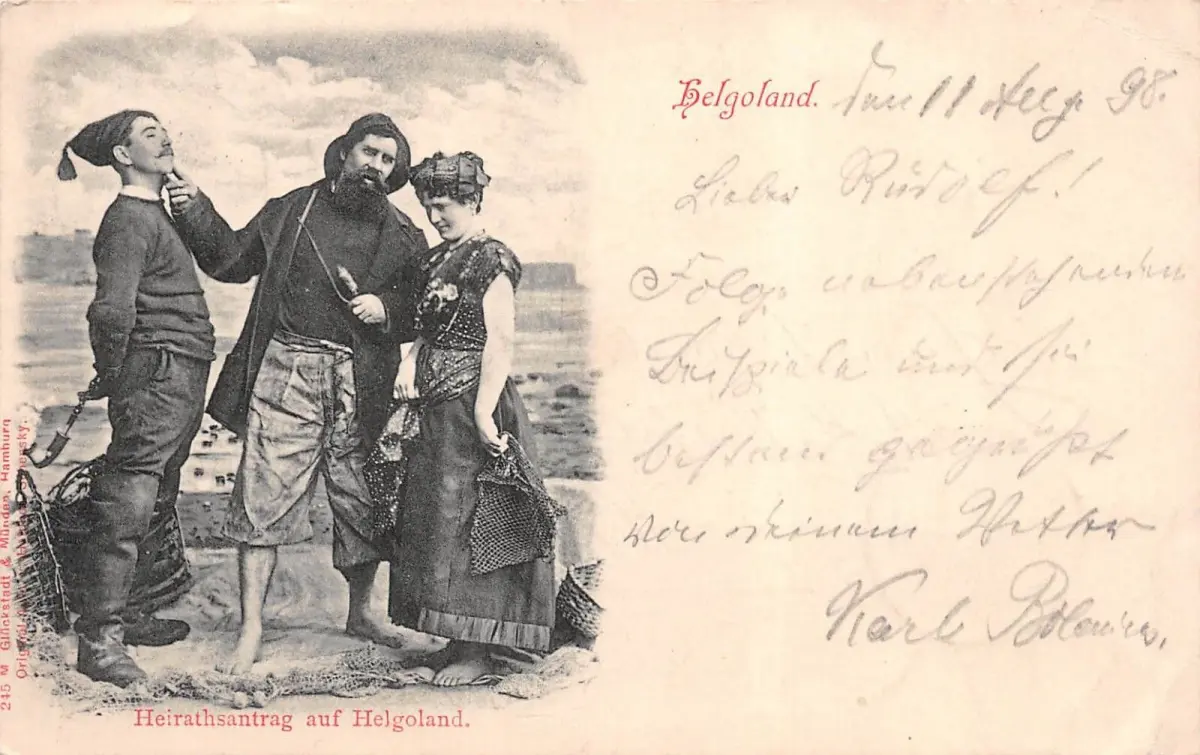 Helgoland. den 11 Aug. 98.
Lieber Rudolf!
Folge nebenstehenden
Beispiele und sei
bestens gegrüßt
von deinem Vetter
Karl
Heirathsantrag auf Helgoland.
245 M Glückstadt & Münden, Hamburg